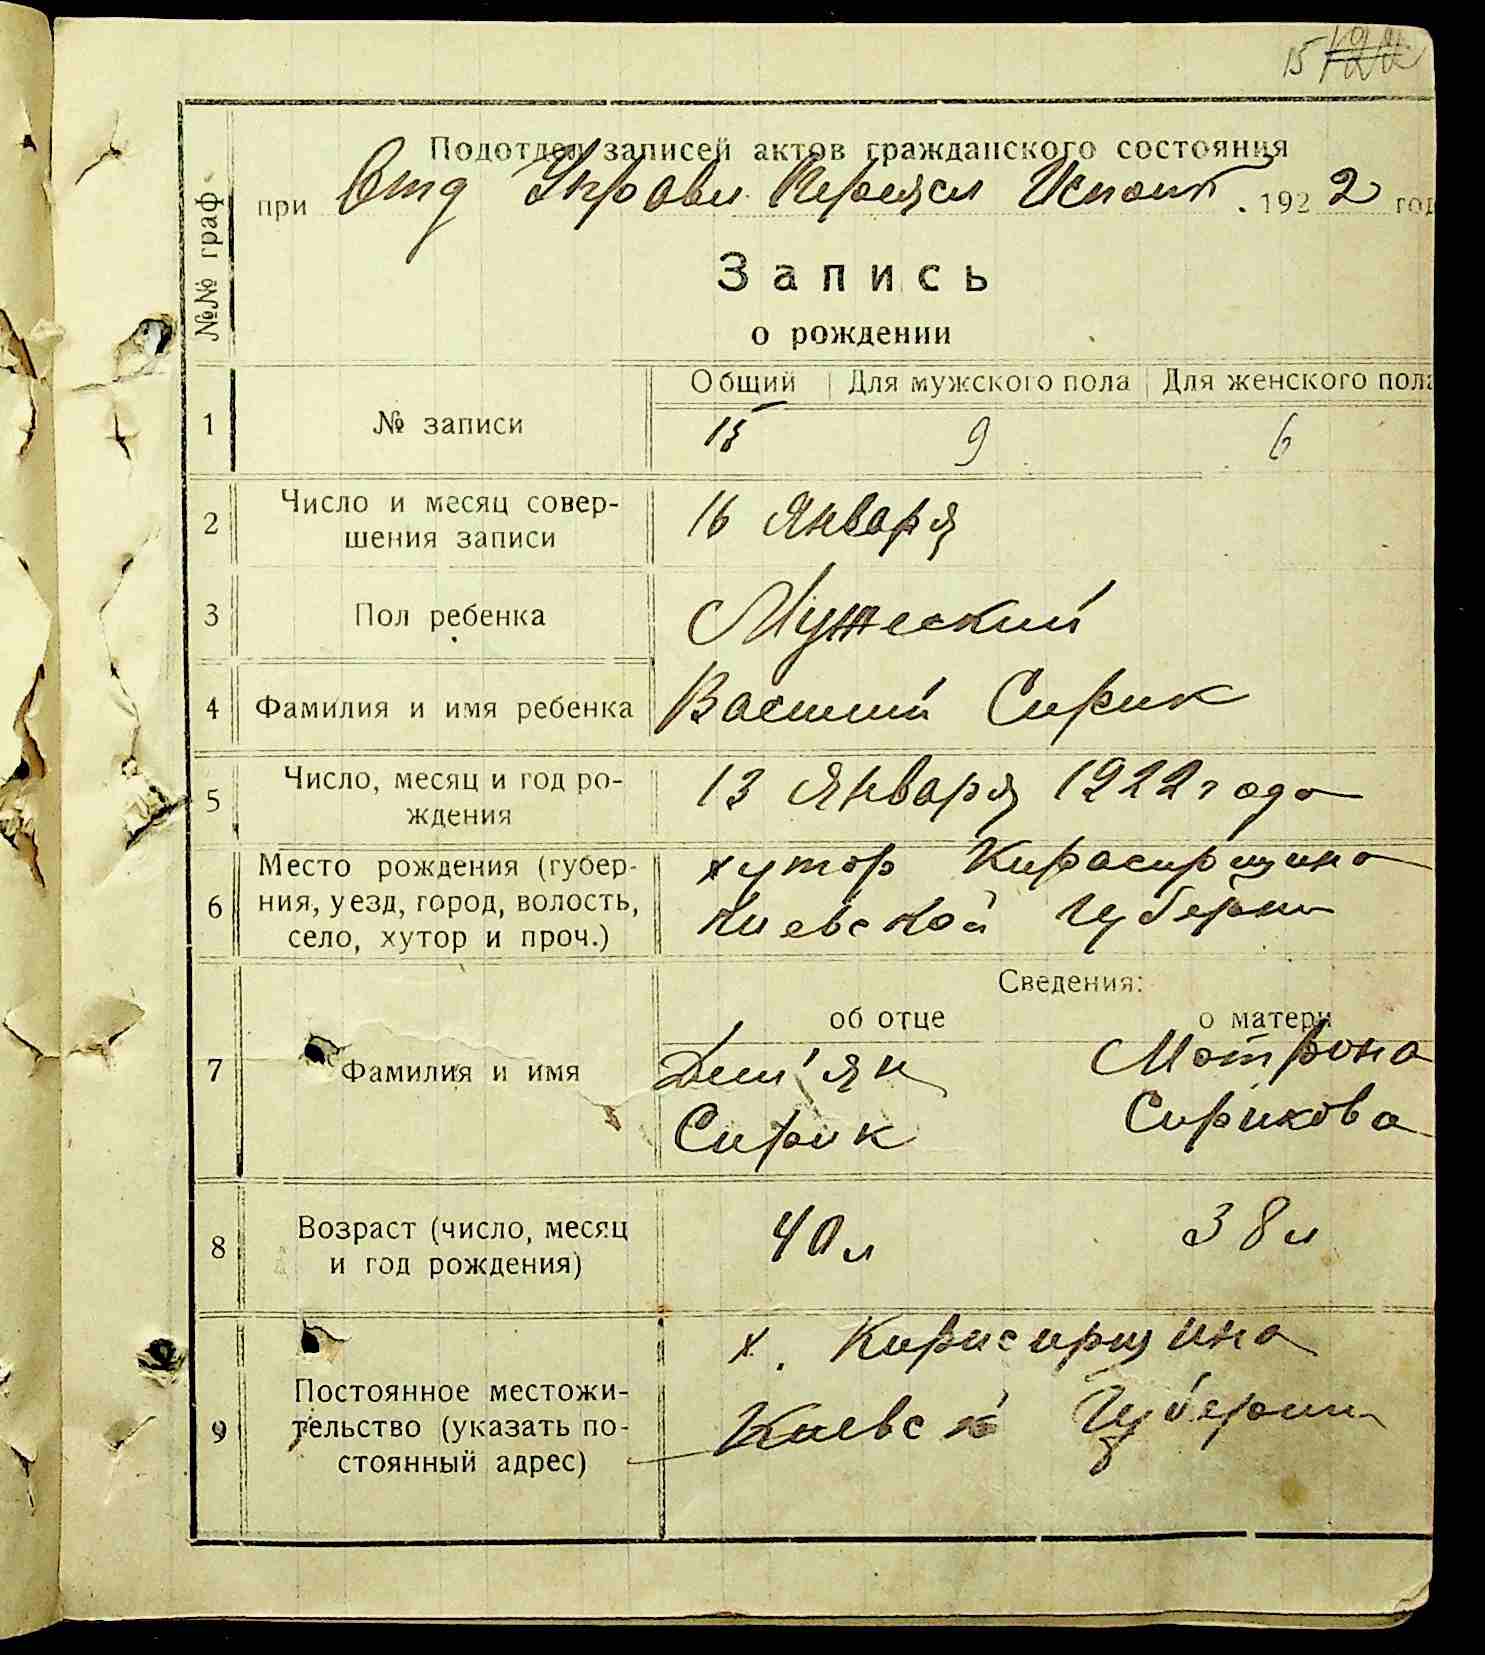 15
Подотдел записей актов гражданского состояния
при Отд Управл Переясл Исполк. 1922 год
№№ граф
Запись
о рождении
Общий Для мужского пола Для женского пола
1 № записи 15 9 6
2 Число и месяц совер-
шения записи 16 Января
3 Пол ребенка Мужеский
4 Фамилия и имя ребенка Василий Сирик
5 Число, месяц и год ро-
ждения 13 Января 1922 года
6 Место рождения (губер-
ния, уезд, город, волость,
село, хутор и проч.) хутор Кирасирщина
Киевской Губернии
Сведения:
об отце о матери
7 Фамилия и имя Дем'ян Мотрона
Сирик Сирикова
8 Возраст (число, месяц
и год рождения) 40 л 38 л
9 Постоянное местожи-
тельство (указать по-
стоянный адрес) х. Кирасирщина
Киевск Губернии